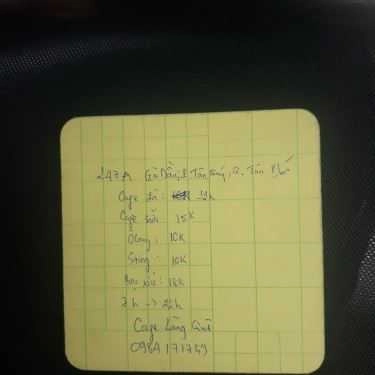 247A Gò Dầu, P. Tân Quý, Q. Tân Phú
Cafe đá: 12k
Cafe sữa 15k
Ôlong: 10k
Sting: 10k
Bạc xỉu: 18k
7h -> 22h
Cafe Làng Quê